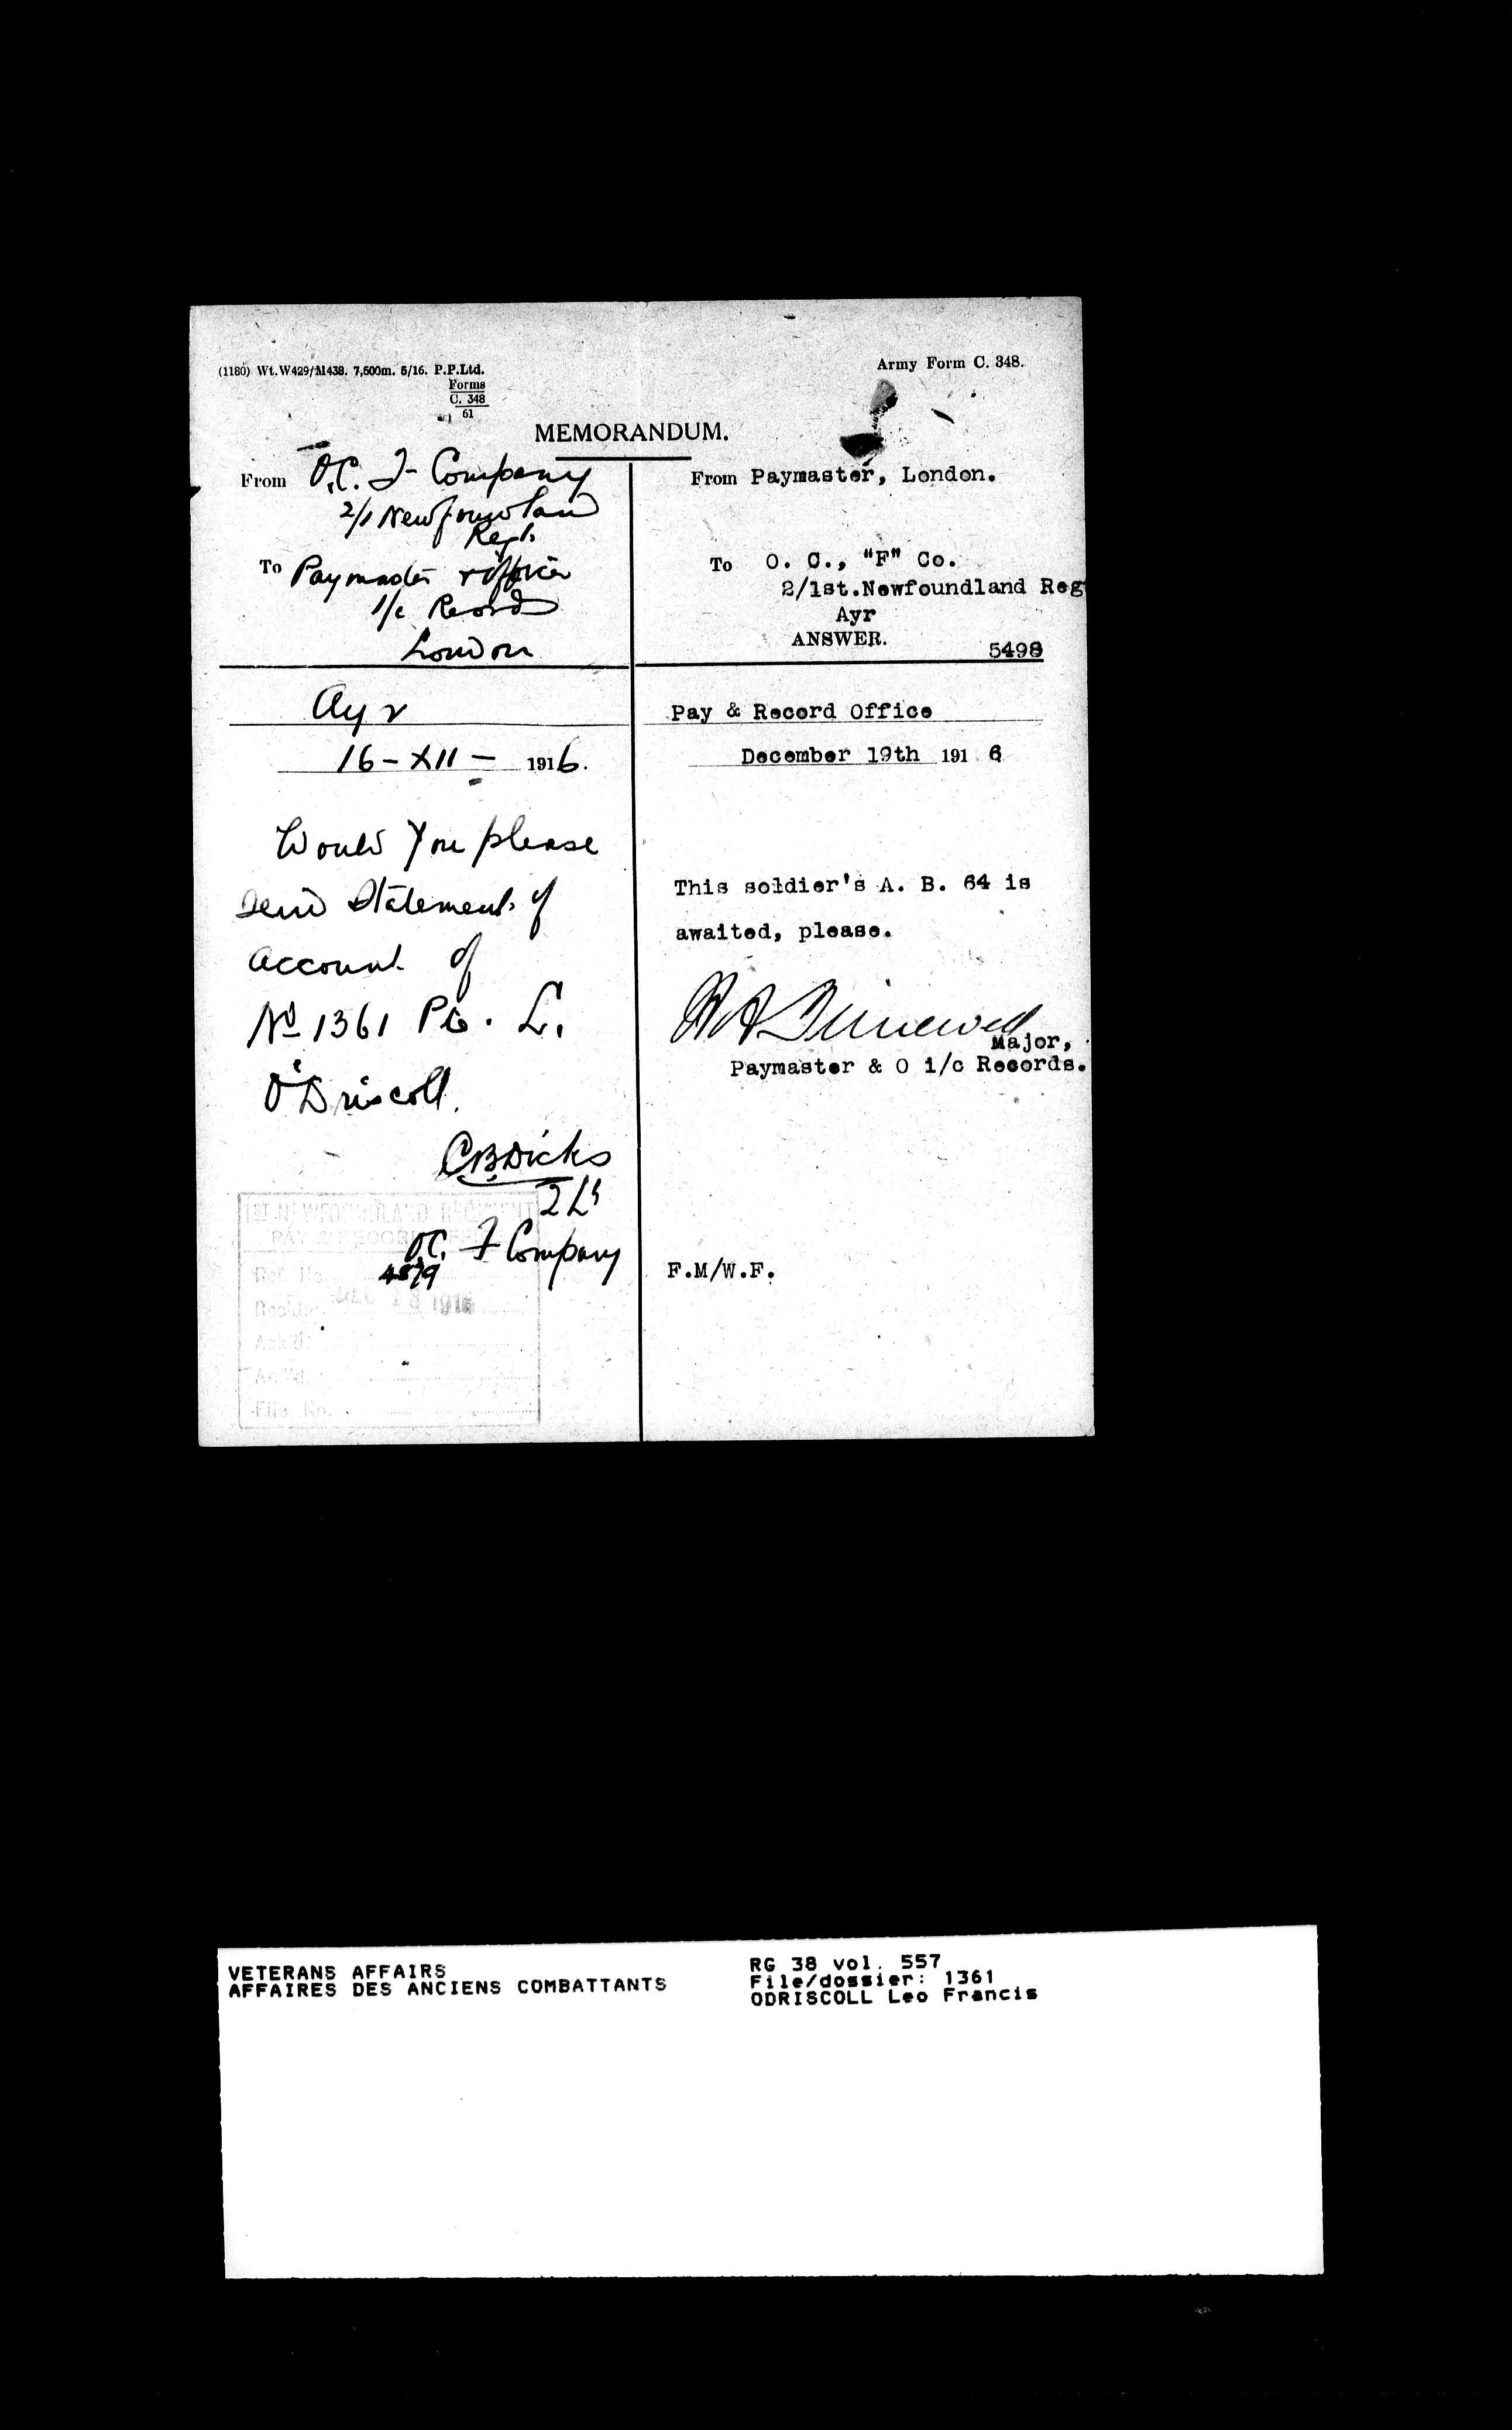 (1180) Wt.W429/M438. 7,500m. 5/16. P.P.Ltd.
Forms
C. 348
61
Army Form C. 348.
MEMORANDUM.
From O.C. F Company
2/1 Newfoundland
Regt.
To Paymaster & Officer
i/c Records
London
Ayr
16-XII- 1916.
Would you please
send Statement of
account of
No 1361 Pte. L.
O'Driscoll.
C.B. Dicks
2 Lt
O.C. F Company
1ST NEWFOUNDLAND REGIMENT
PAY & RECORD OFFICE
Ref. No. 4879
DEC 18 1916
Ack'd.
File No.
From Paymaster, London.
To O. C., "F" Co.
2/1st.Newfoundland Reg
Ayr
ANSWER.
5498
Pay & Record Office
December 19th 191 6
This soldier's A. B. 64 is
awaited, please.
Major,
Paymaster & O i/c Records.
F.M/W.F.
VETERANS AFFAIRS
AFFAIRES DES ANCIENS COMBATTANTS
RG 38 vol. 557
File/dossier: 1361
ODRISCOLL Leo Francis